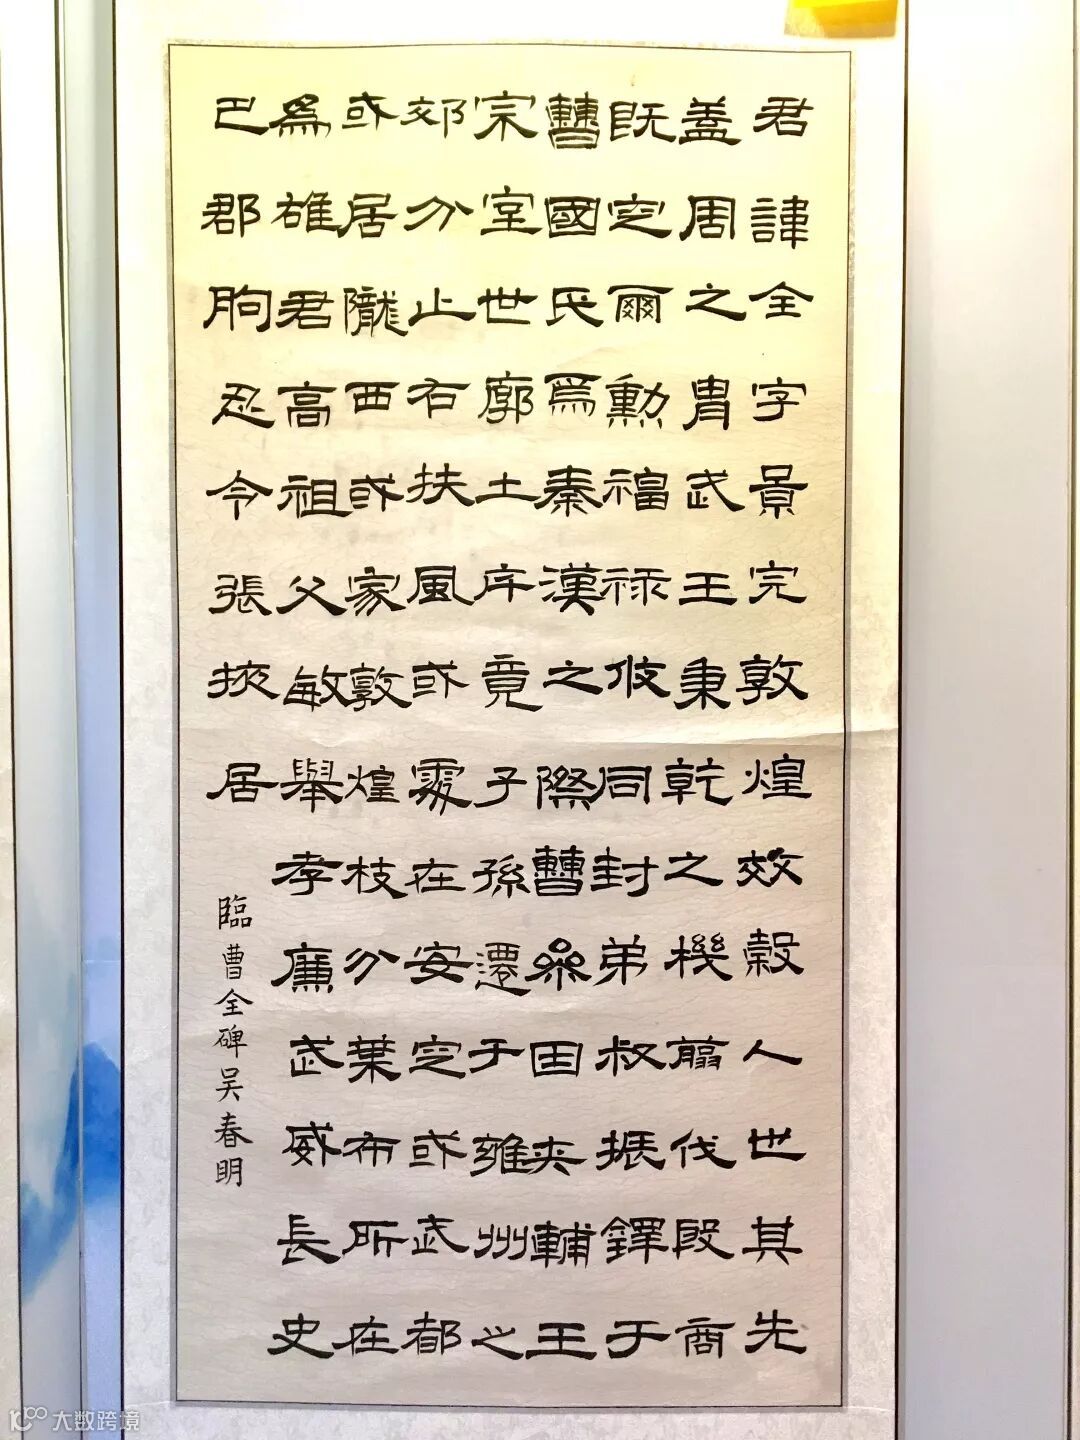 君諱全字景完敦煌效穀人世其先
蓋周之胄武王秉乾之機翦伐殷商
既定爾勳福祿攸同封弟叔振鐸于
曹國氏焉秦漢之際曹參因夾輔王
宗室世廓土斥竟子孫遷于雍州之
郊分止右扶風或處在安定或武都
或居隴西或家敦煌枝分葉布所在
為雄君高祖父敏舉孝廉武威長史
巴郡朐忍令張掖居
臨曹全碑吴春明
大数跨境